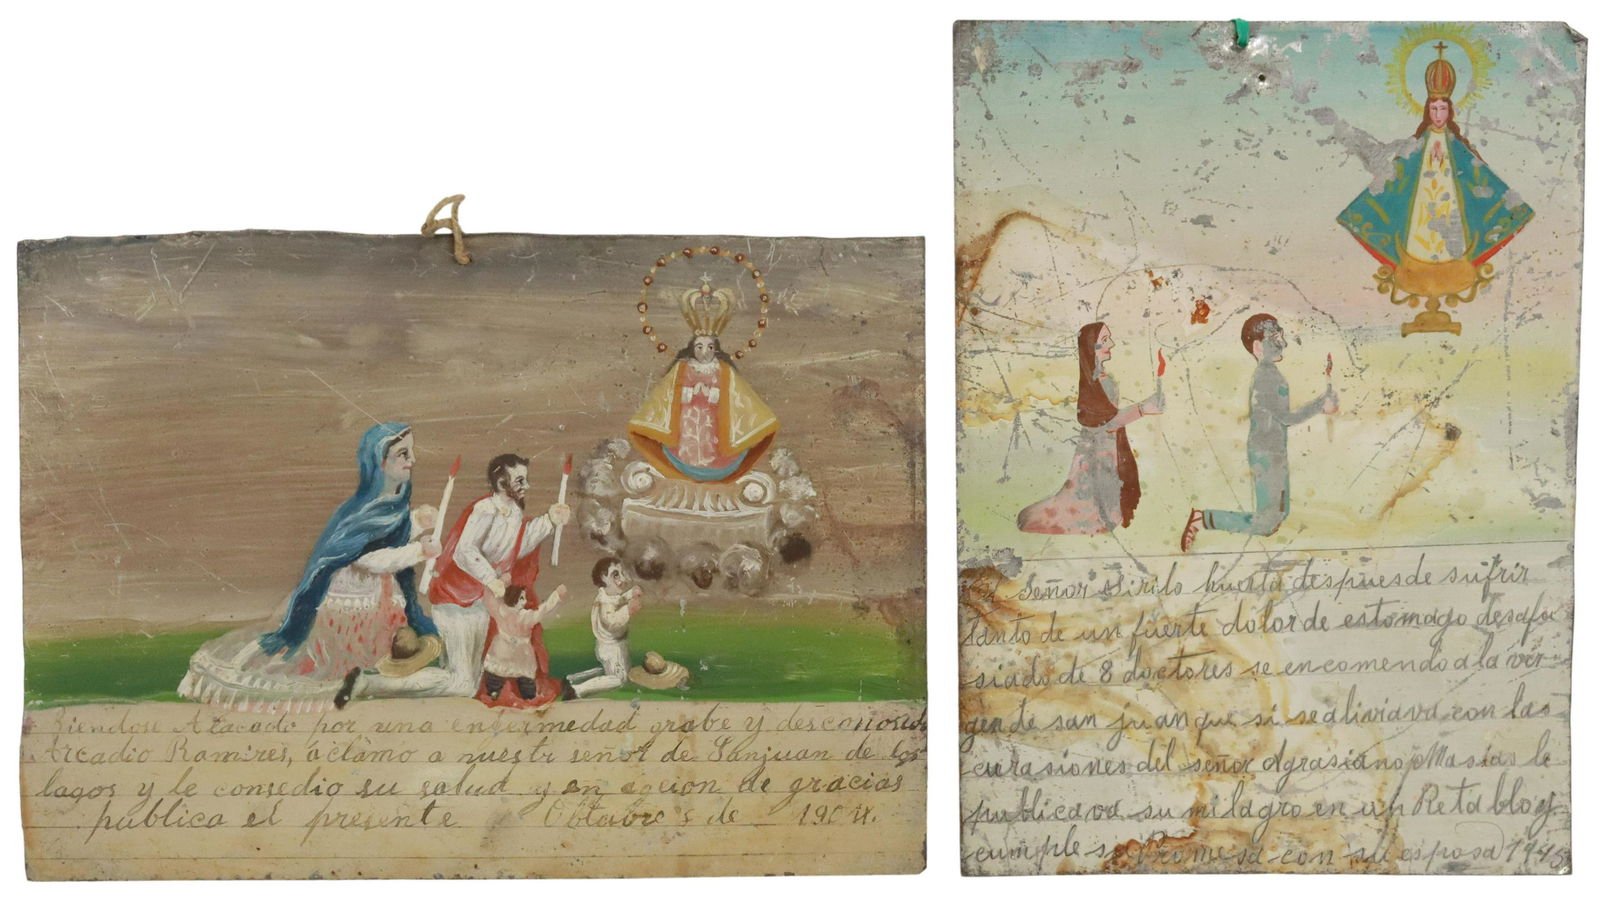 Biendose Atacado por una enfermedad grabe y desconosida
Arcadio Ramires, aclamo a nuestr señor de Sanjuan de los
lagos y le consedio su salud y en acion de gracias
publica el presente Obtubre 5 de 1904.
El Señor Sirilo huerta despues de sufrir
tanto de un fuerte dolor de estomago desafu
siado de 8 doctores se encomendo a la vir
gen de san juan que si se aliviava con las
curasiones del señor Agrasiano Masias le
publicava su milagro en un Retablo y
cumple su Promesa con su esposa 1945